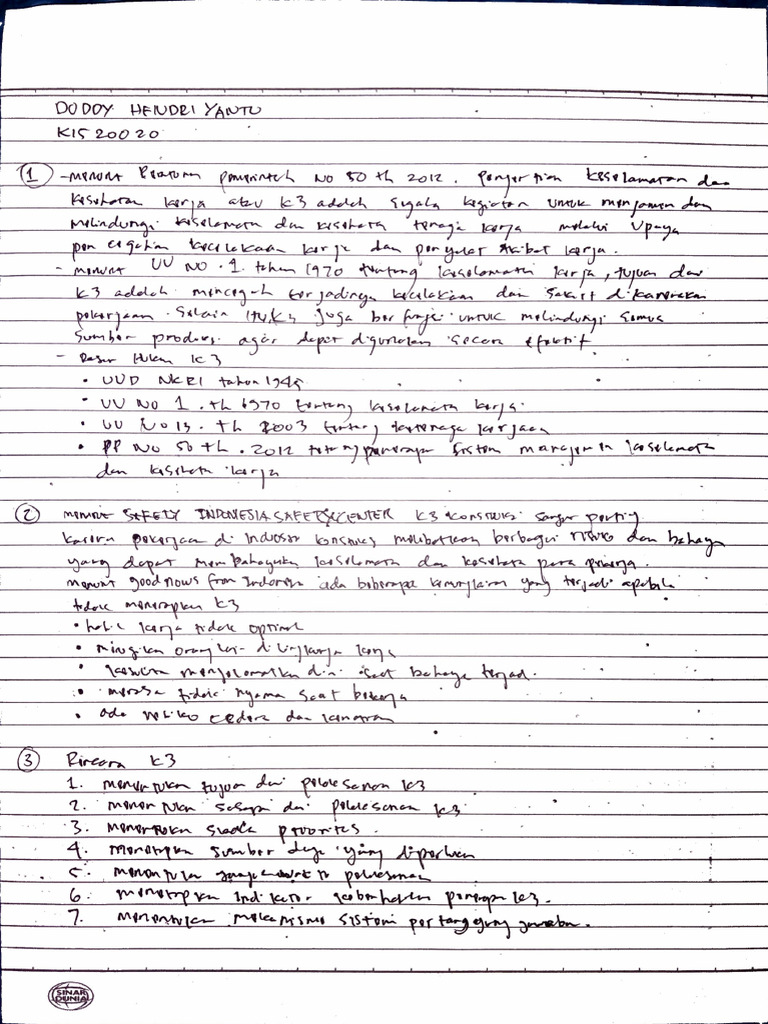 DODDY HENDRI YANTO
K1520020
① - menurut Peraturan pemerintah No 50 th 2012. pengertian keselamatan dan
kesehatan kerja atau K3 adalah segala kegiatan untuk menjamin dan
melindungi keselamata dan kesehata tenaga kerja melalui Upaya
pencegahan kecelakaan kerja dan penyakit akibat kerja.
- menurut UU NO. 1. tahun 1970 tentang keselamatan kerja, tujuan dari
K3 adalah mencegah terjadinya kecelakaan dan sakit dikarenakan
pekerjaan. Selain itu, K3 juga berfungsi untuk melindungi semua
sumber produksi agar dapat digunakan secara efektif
- Dasar Hukum K3
• UUD NKRI tahun 1945
• UU NO 1. th 1970 tentang keselamata kerja.
• UU No 13. th 2003 tentang ketenaga kerjaan
• PP NO 50 th. 2012 tentang penerapan Sistem manajemen keselamata
dan kesehata kerja
② menurut SAFETY INDONESIA SAFETY CENTER K3 konstruksi sangat penting
karena pekerjaan di Industri konstruksi melibatkan berbagai risiko dan bahaya
yang dapat membahayakan keselamata dan kesehata para pekerja.
menurut good news from Indonesia ada beberapa kemungkinan yang terjadi apabila
tidak menerapkan K3
• hasil kerja tidak optimal
• merugikan orang lain di lingkungan kerja
• kesulitan menyelamatkan diri saat bahaya terjadi.
• merasa tidak nyaman saat bekerja
• ada risiko cedera dan
③ Rencana K3
1. menentukan tujuan dari pelaksanaan K3
2. menentukan sasaran dari pelaksanaan K3
3. menentukan skala prioritas.
4. menetapkan sumber daya yang diperlukan
5. menentukan jangka waktu pelaksanaan
6. menetapkan indikator keberhasilan penerapan K3.
7. menentukan mekanisme sistem pertanggung jawaban.
SINAR
DUNIA